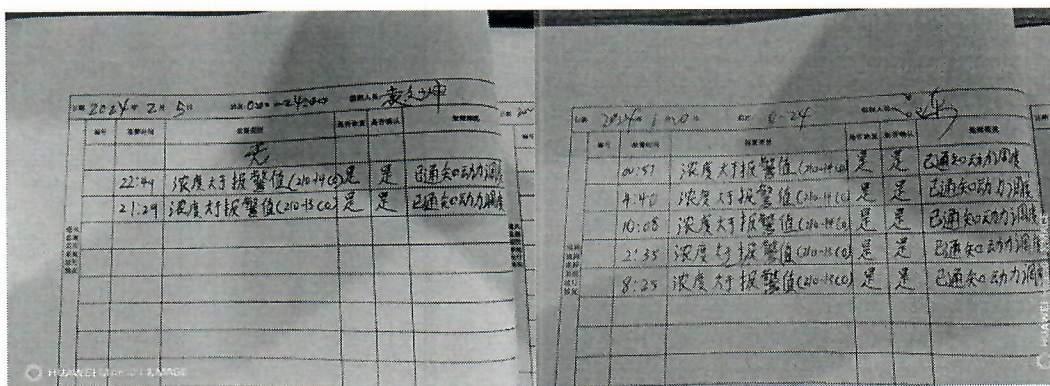 日期 2024年 2月 5日
编号 报警时间 是否恢复 是否确认 处理情况
无
22:49 浓度大于报警值(210-14CO) 是 是 已通知动力调度
21:29 浓度大于报警值(210-13CO) 是 是 已通知动力调度
HUAWEI
日期 2024年 1月 0-24
编号 报警时间 报警类型 是否恢复 是否确认 处理情况
00:51 浓度大于报警值(210-14CO) 是 是 已通知动力调度
4:40 浓度大于报警值(210-14CO) 是 是 已通知动力调度
10:08 浓度大于报警值(210-14CO) 是 是 已通知动力调度
2:35 浓度大于报警值(210-13CO) 是 是 已通知动力调度
8:25 浓度大于报警值(210-13CO) 是 是 已通知动力调度
HUAWEI